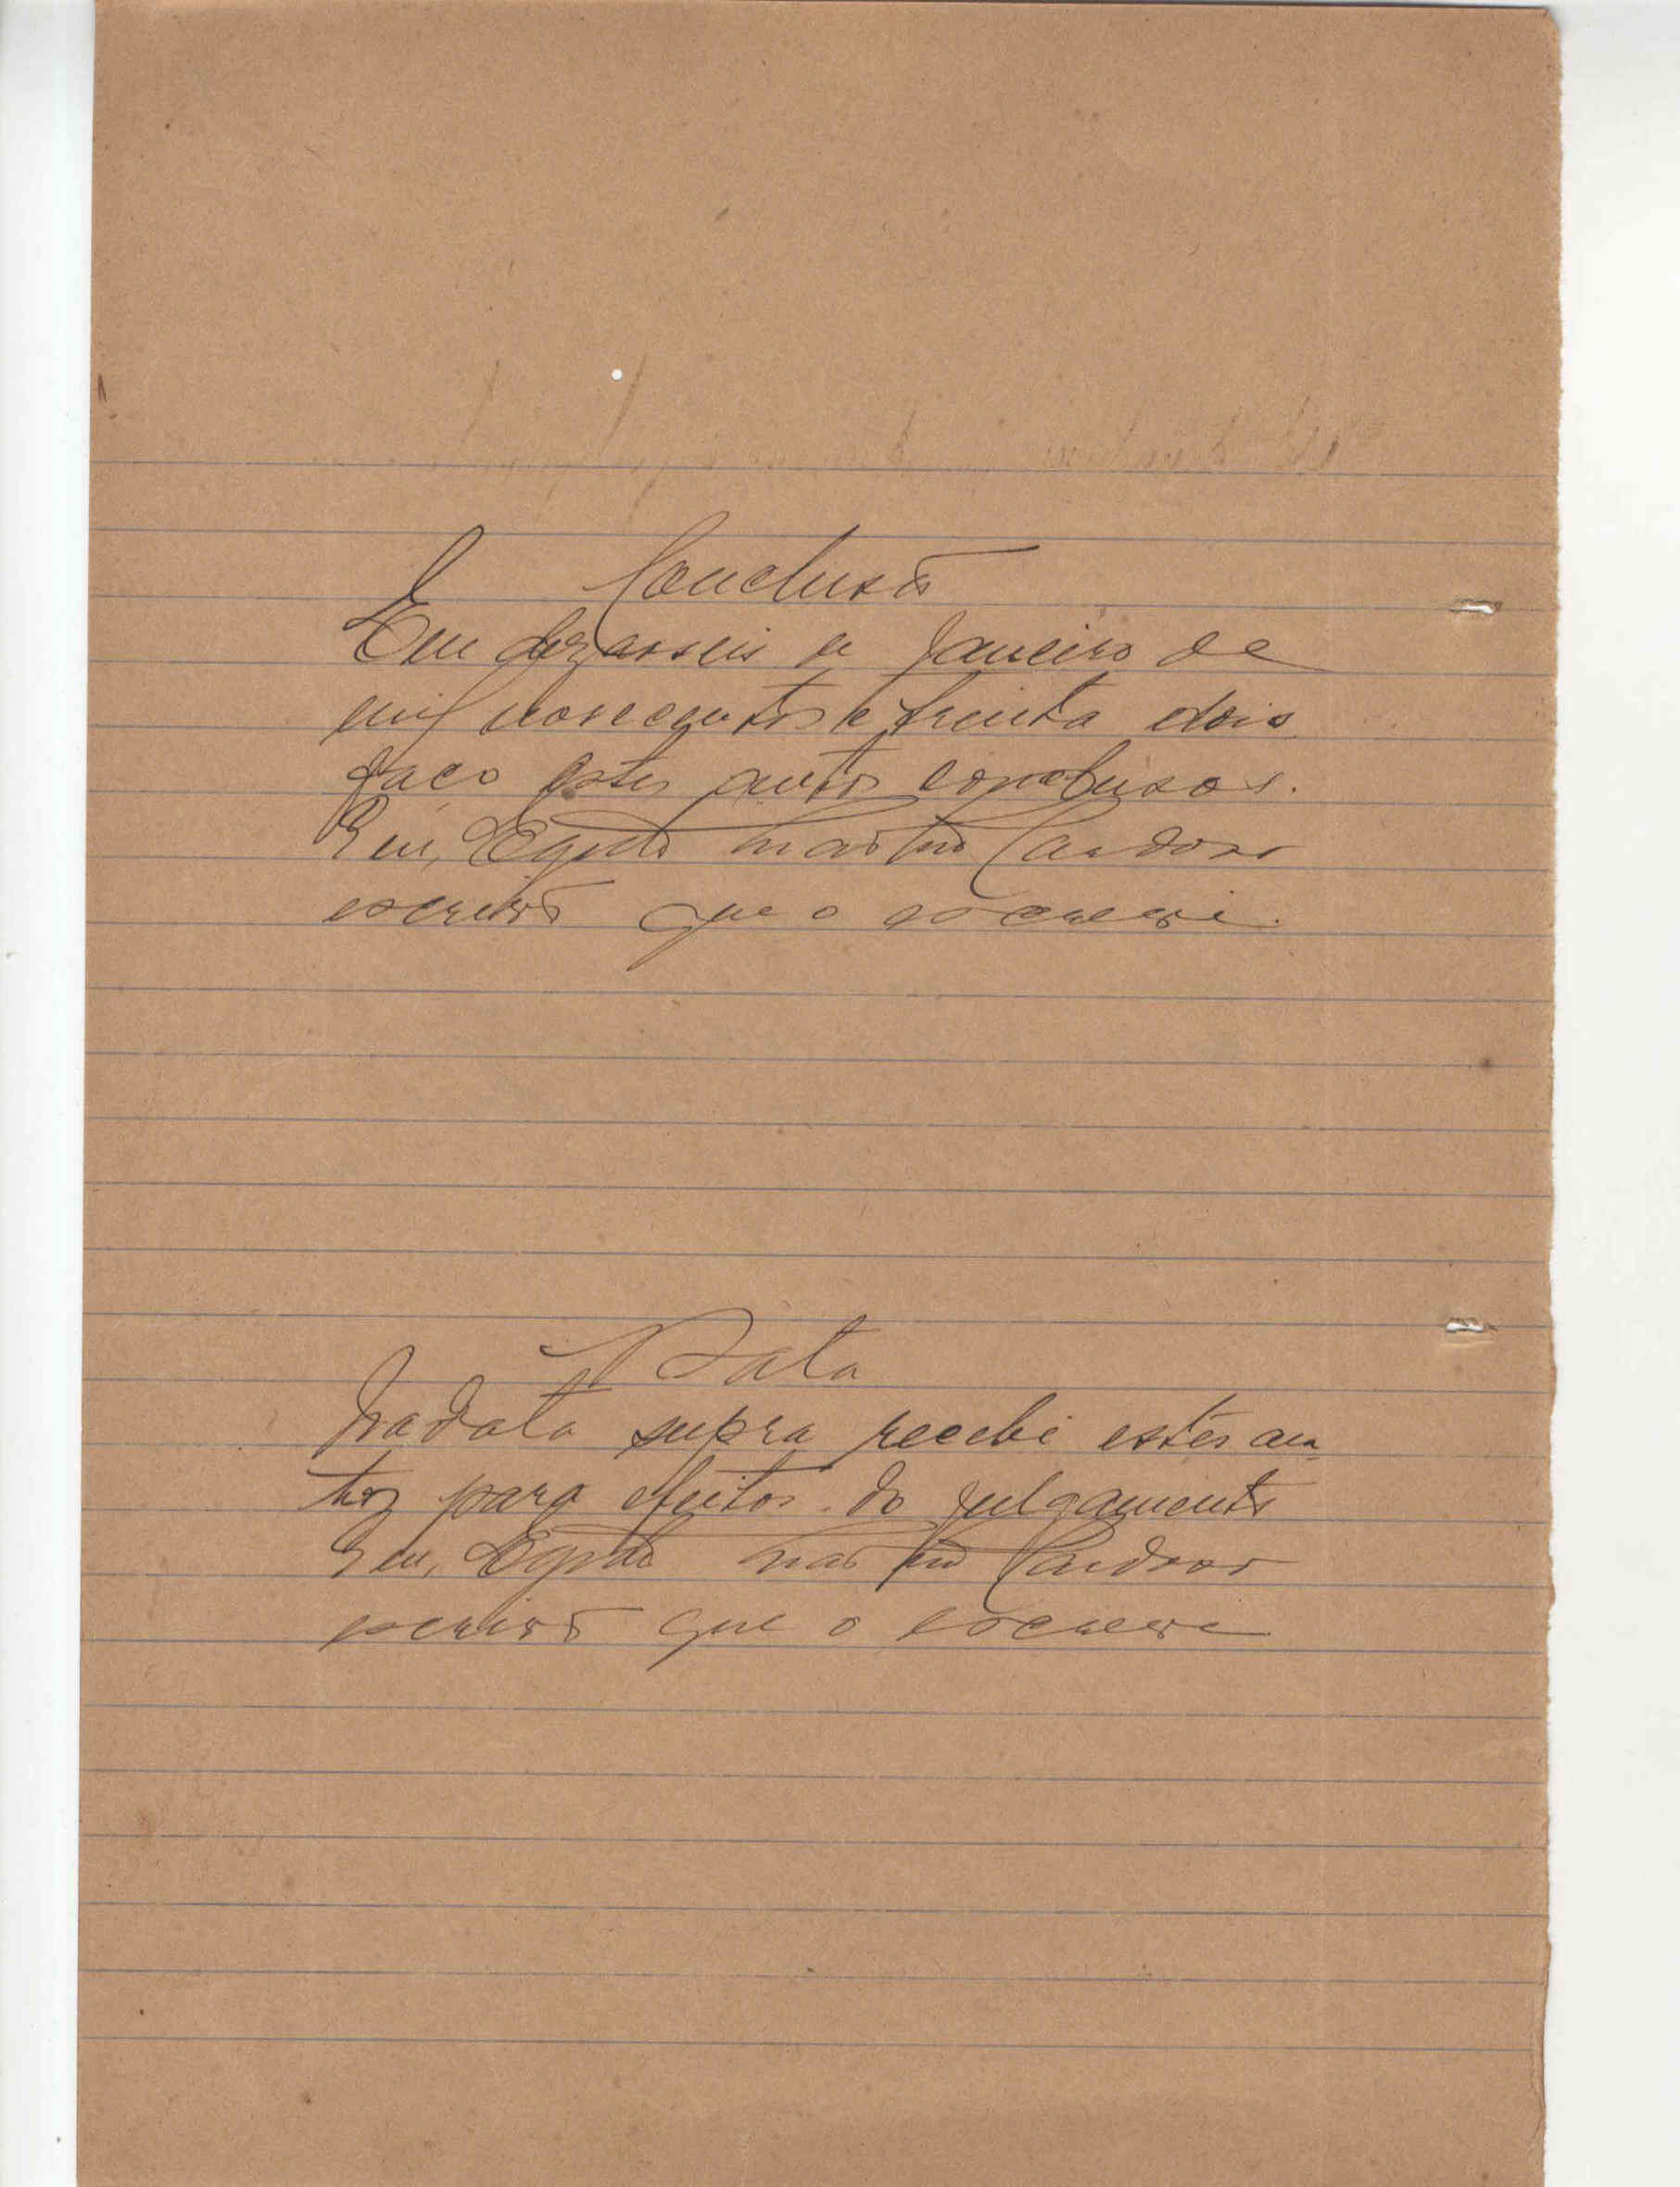 Conclusão
Em dezasseis de Janeiro de
mil novecentos e trinta e dois
faço estes autos conclusos.
Eu, Egidio Martins Cardoso
escrivão que o escrevi.
Data
Na data supra recebi estes au-
tos para efeitos do julgamento
Eu, Egidio Martins Cardoso
escrivão que o escrevi